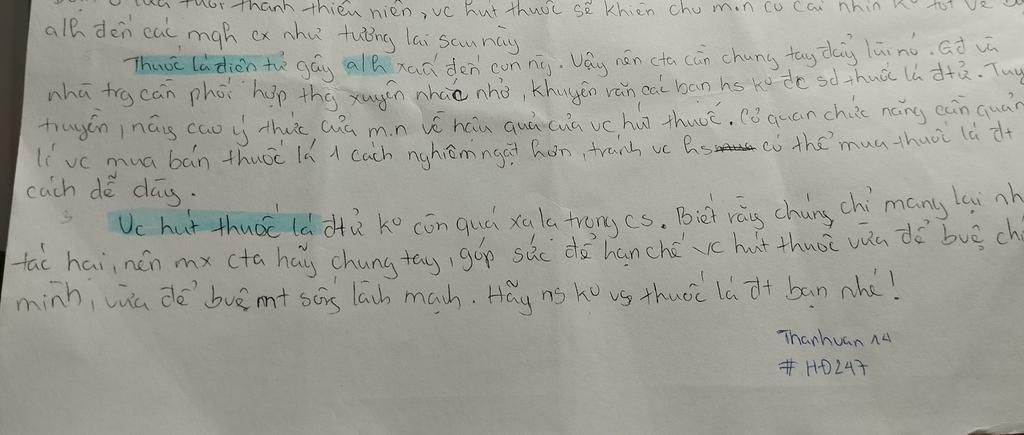 lứa tuổi thanh thiếu niên, vc hút thuốc sẽ khiến cho m.n có cái nhìn ko tốt về
alh đến các mqh cx như tương lai sau này
Thuốc lá điện tử gây alh xấu đến con ng. Vậy nên cta cần chung tay đẩy lùi nó. Gđ và
nhà trg cần phối hợp thg xuyên nhắc nhở, khuyên răn các bạn hs ko đc sd thuốc lá đtử. Tuy
truyền, nâng cao ý thức của m.n về hậu quả của vc hút thuốc. Cơ quan chức năng cần quản
lí vc mua bán thuốc lá 1 cách nghiêm ngặt hơn, tránh vc hs có thể mua thuốc lá đt
cách dễ dàng.
Vc hút thuốc lá đtử ko còn quá xa lạ trong cs. Biết rằng chúng chỉ mang lại nh
tác hại, nên mx cta hãy chung tay, góp sức để hạn chế vc hút thuốc vừa để bvệ ch
mình, vừa để bvệ mt sống lành mạnh. Hãy ns ko vs thuốc lá đt bạn nhé!
Thanhvan 14
# HD247